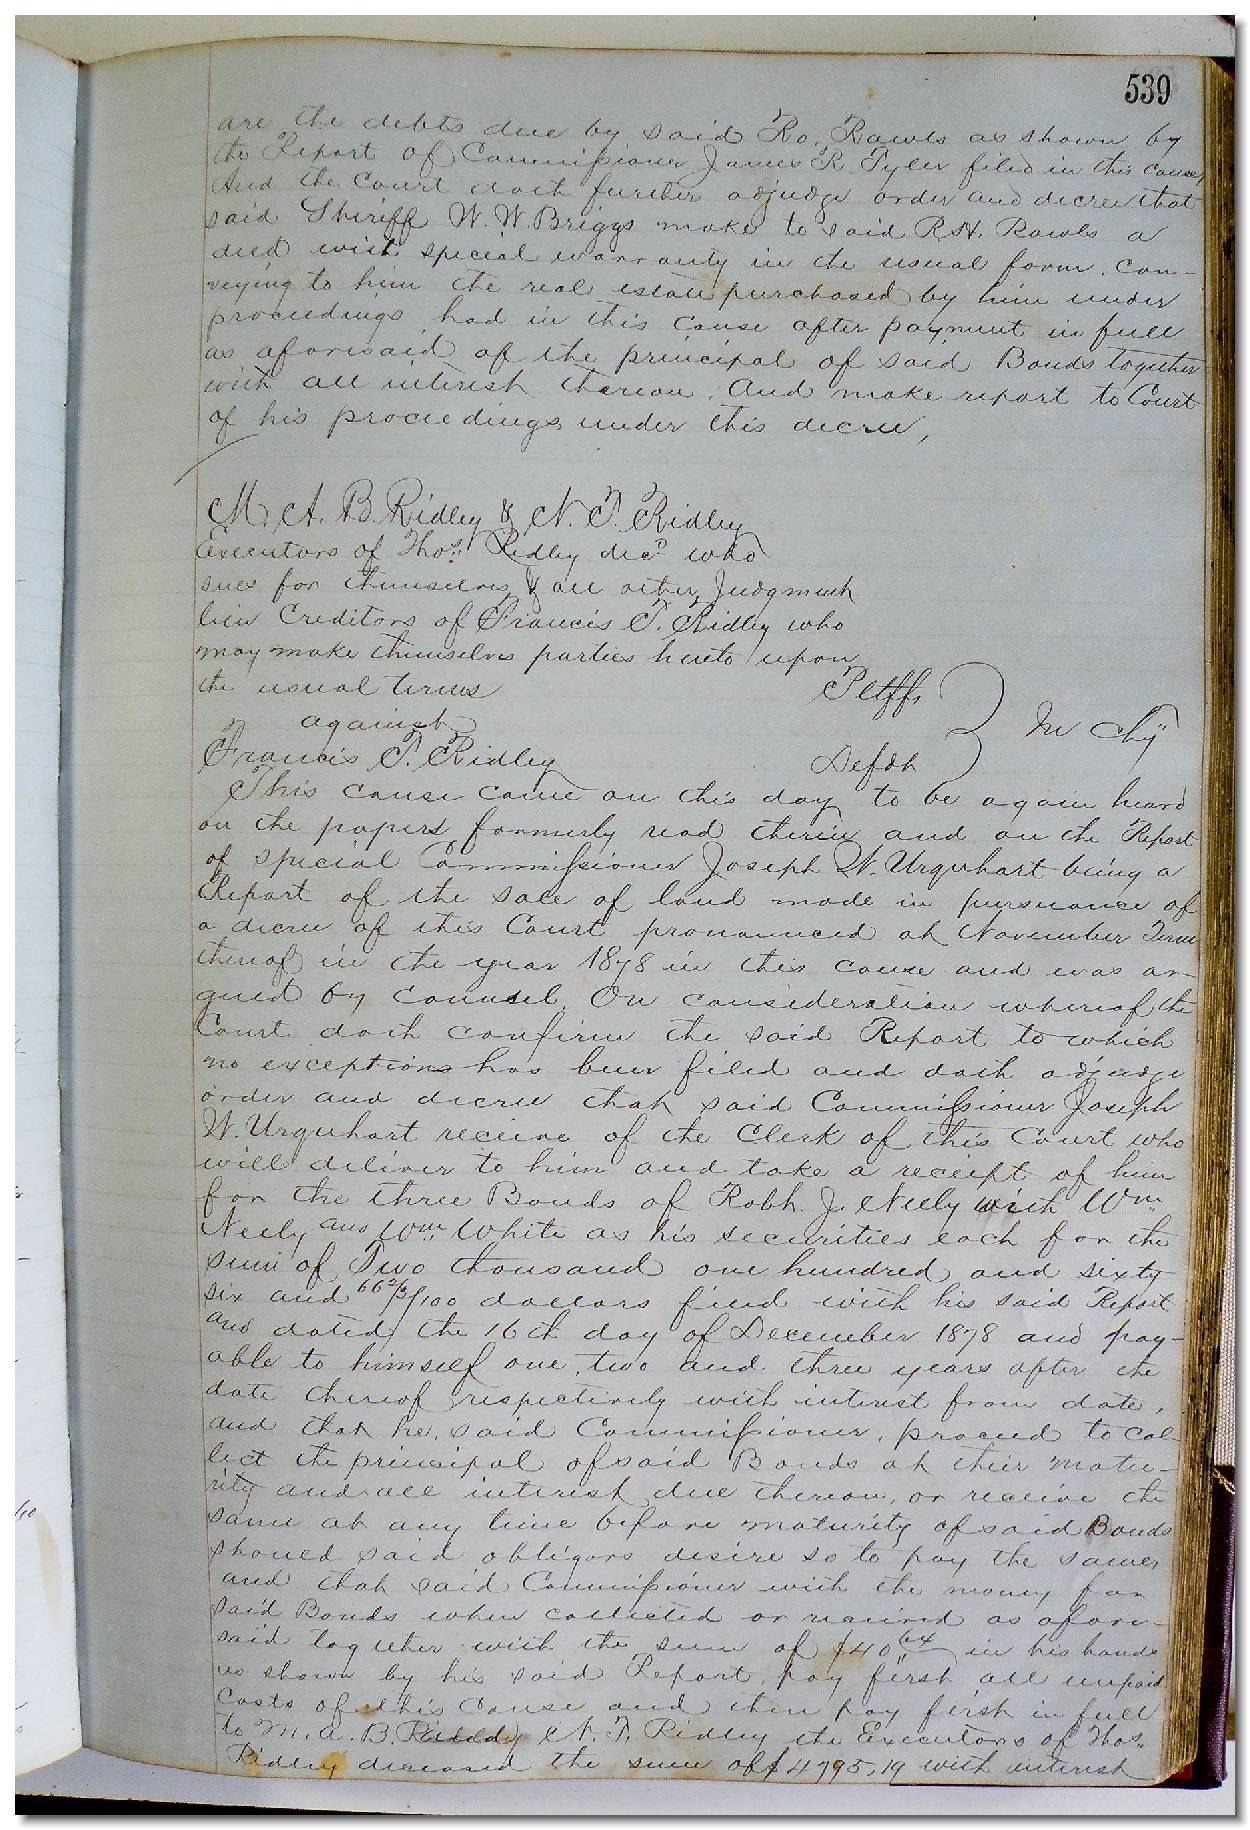 539
are the debts due by said Ro. Rawls as shown by
the Report of Commissioner James R. Tyler filed in this cause,
And the Court doth further adjudge order and decree that
said Sheriff W. W. Briggs make to said R.H. Rawls a
deed with special warranty in the usual form, con-
veying to him the real estate purchased by him under
proceedings had in this cause after payment in full
as aforesaid of the principal of said Bonds together
with all interest thereon. And make report to Court
of his proceedings under this decree,
M. A. B. Ridley & N. T. Ridley
Executors of Thos. Ridley decd who
sues for themselves & all other Judgment
lien Creditors of Francis T. Ridley who
may make themselves parties hereto upon
the usual terms Pltffs
against In Chy
Francis T. Ridley Defdt
This cause came on this day to be again heard
on the papers formerly read therein and on the Report
of special Commissioner Joseph W. Urquhart being a
Report of the sale of land made in pursuance of
a decree of this Court pronounced at November Term
thereof in the year 1878 in this cause and was ar-
gued by Counsel. On consideration whereof the
Court doth confirm the said Report to which
no exceptions has been filed and doth adjudge
order and decree that said Commissioner Joseph
W. Urquhart receive of the Clerk of this Court who
will deliver to him and take a receipt of him
for the three Bonds of Robt. J. Neely with Wm.
Neely and Wm. White as his securities each for the
sum of Two thousand one hundred and sixty
six and 66 2/3/100 dollars filed with his said Report
and dated the 16th day of December 1878 and pay-
able to himself one, two and three years after the
date thereof respectively with interest from date,
and that he, said Commissioner, proceed to col-
lect the principal of said Bonds at their matu-
rity and all interest due thereon, or receive the
same at any time before maturity of said Bonds
should said obligors desire so to pay the same,
and that said Commissioner with the money for
said Bonds when collected or received as afore-
said together with the sum of $40 64 in his hands
as shown by his said Report, pay first all unpaid
costs of this Cause and then pay first in full
to M. A. B. N. T. Ridley the Executors of Thos.
Ridley deceased the sum of $4795,19 with interest